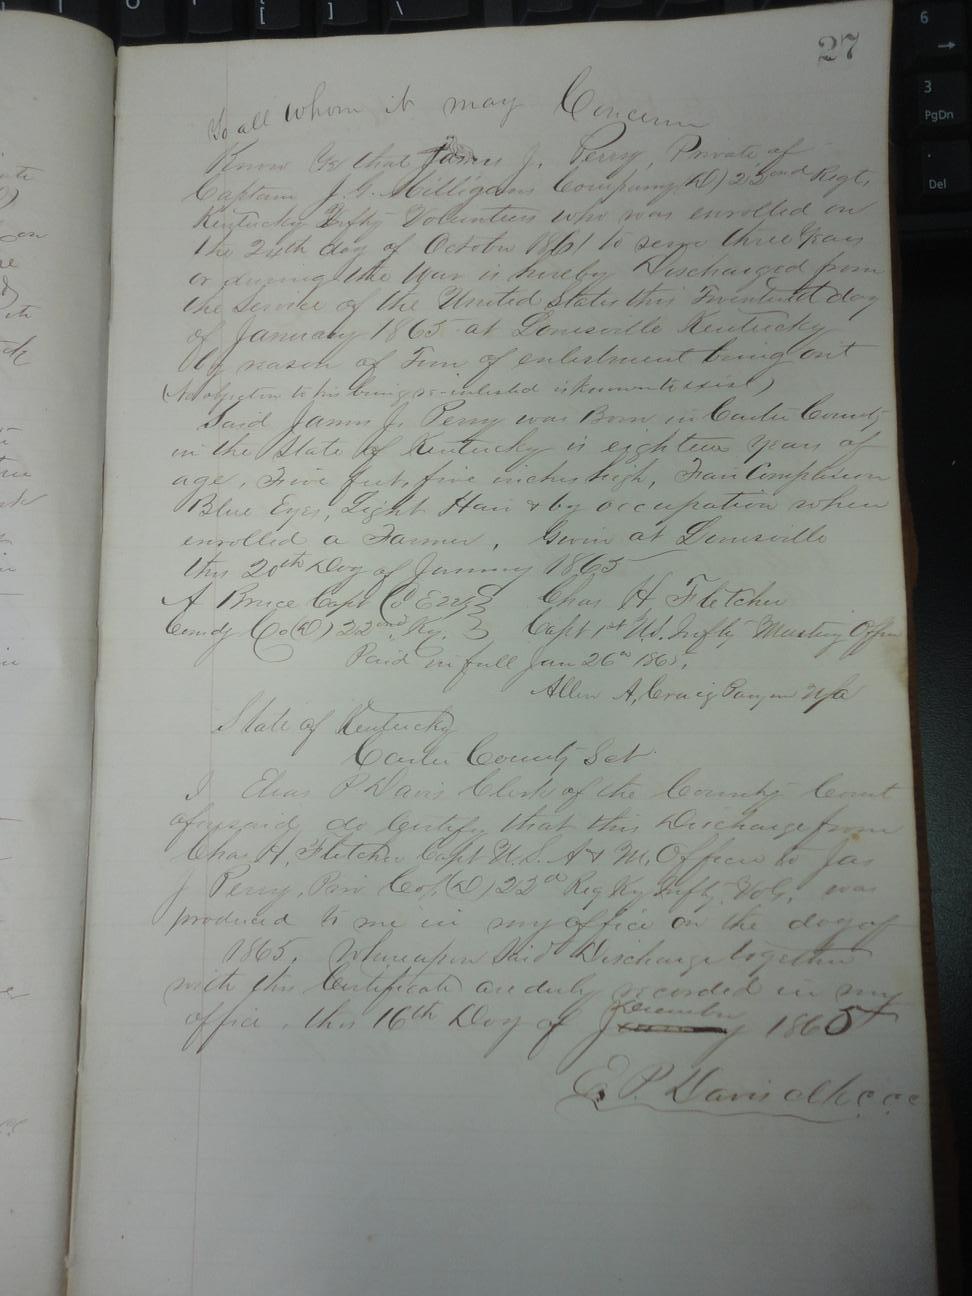 27
To all whom it may Concern
Know Ye that James J. Perry, Private of
Captain J. G. Milligans Company (D) 22nd Regt,
Kentucky Infty Volunteers who was enrolled on
the 24th day of October 1861 to serve three years
or during the War is hereby Discharged from
the service of the United States this Twentieth day
of January 1865 at Louisville Kentucky
By reason of Term of enlistment being out
(No objection to his being re-enlisted is known to exist)
Said James J. Perry was Born in Carter County
in the State of Kentucky is eighteen years of
age, Five feet, five inches high, Fair Complexion
Blue Eyes, Light Hair & by occupation when
enrolled a Farmer, Given at Louisville
this 20th Day of January 1865
A Bruce Capt Co E 22
Comdg Co (D) 22nd Ky.
Chas H Fletcher
Capt 1st US. Infty Musting Officer
Paid in full Jan 26th 1865,
Allen A, Craig
State of Kentucky
Carter County Sct
I Elias P Davis Clerk of the County Court
aforesaid, do Certify that this Discharge from
Chas H, Fletcher Capt U.S. A & M, Officer to Jas
J Perry, Priv Co, (D) 22d Reg Ky Infty Vols, was
produced to me in my office on the day of
1865, whereupon Said Discharge together
with this Certificate are duly recorded in my
office, this 16th Day of December 1865
E. P. Davis clk c c c